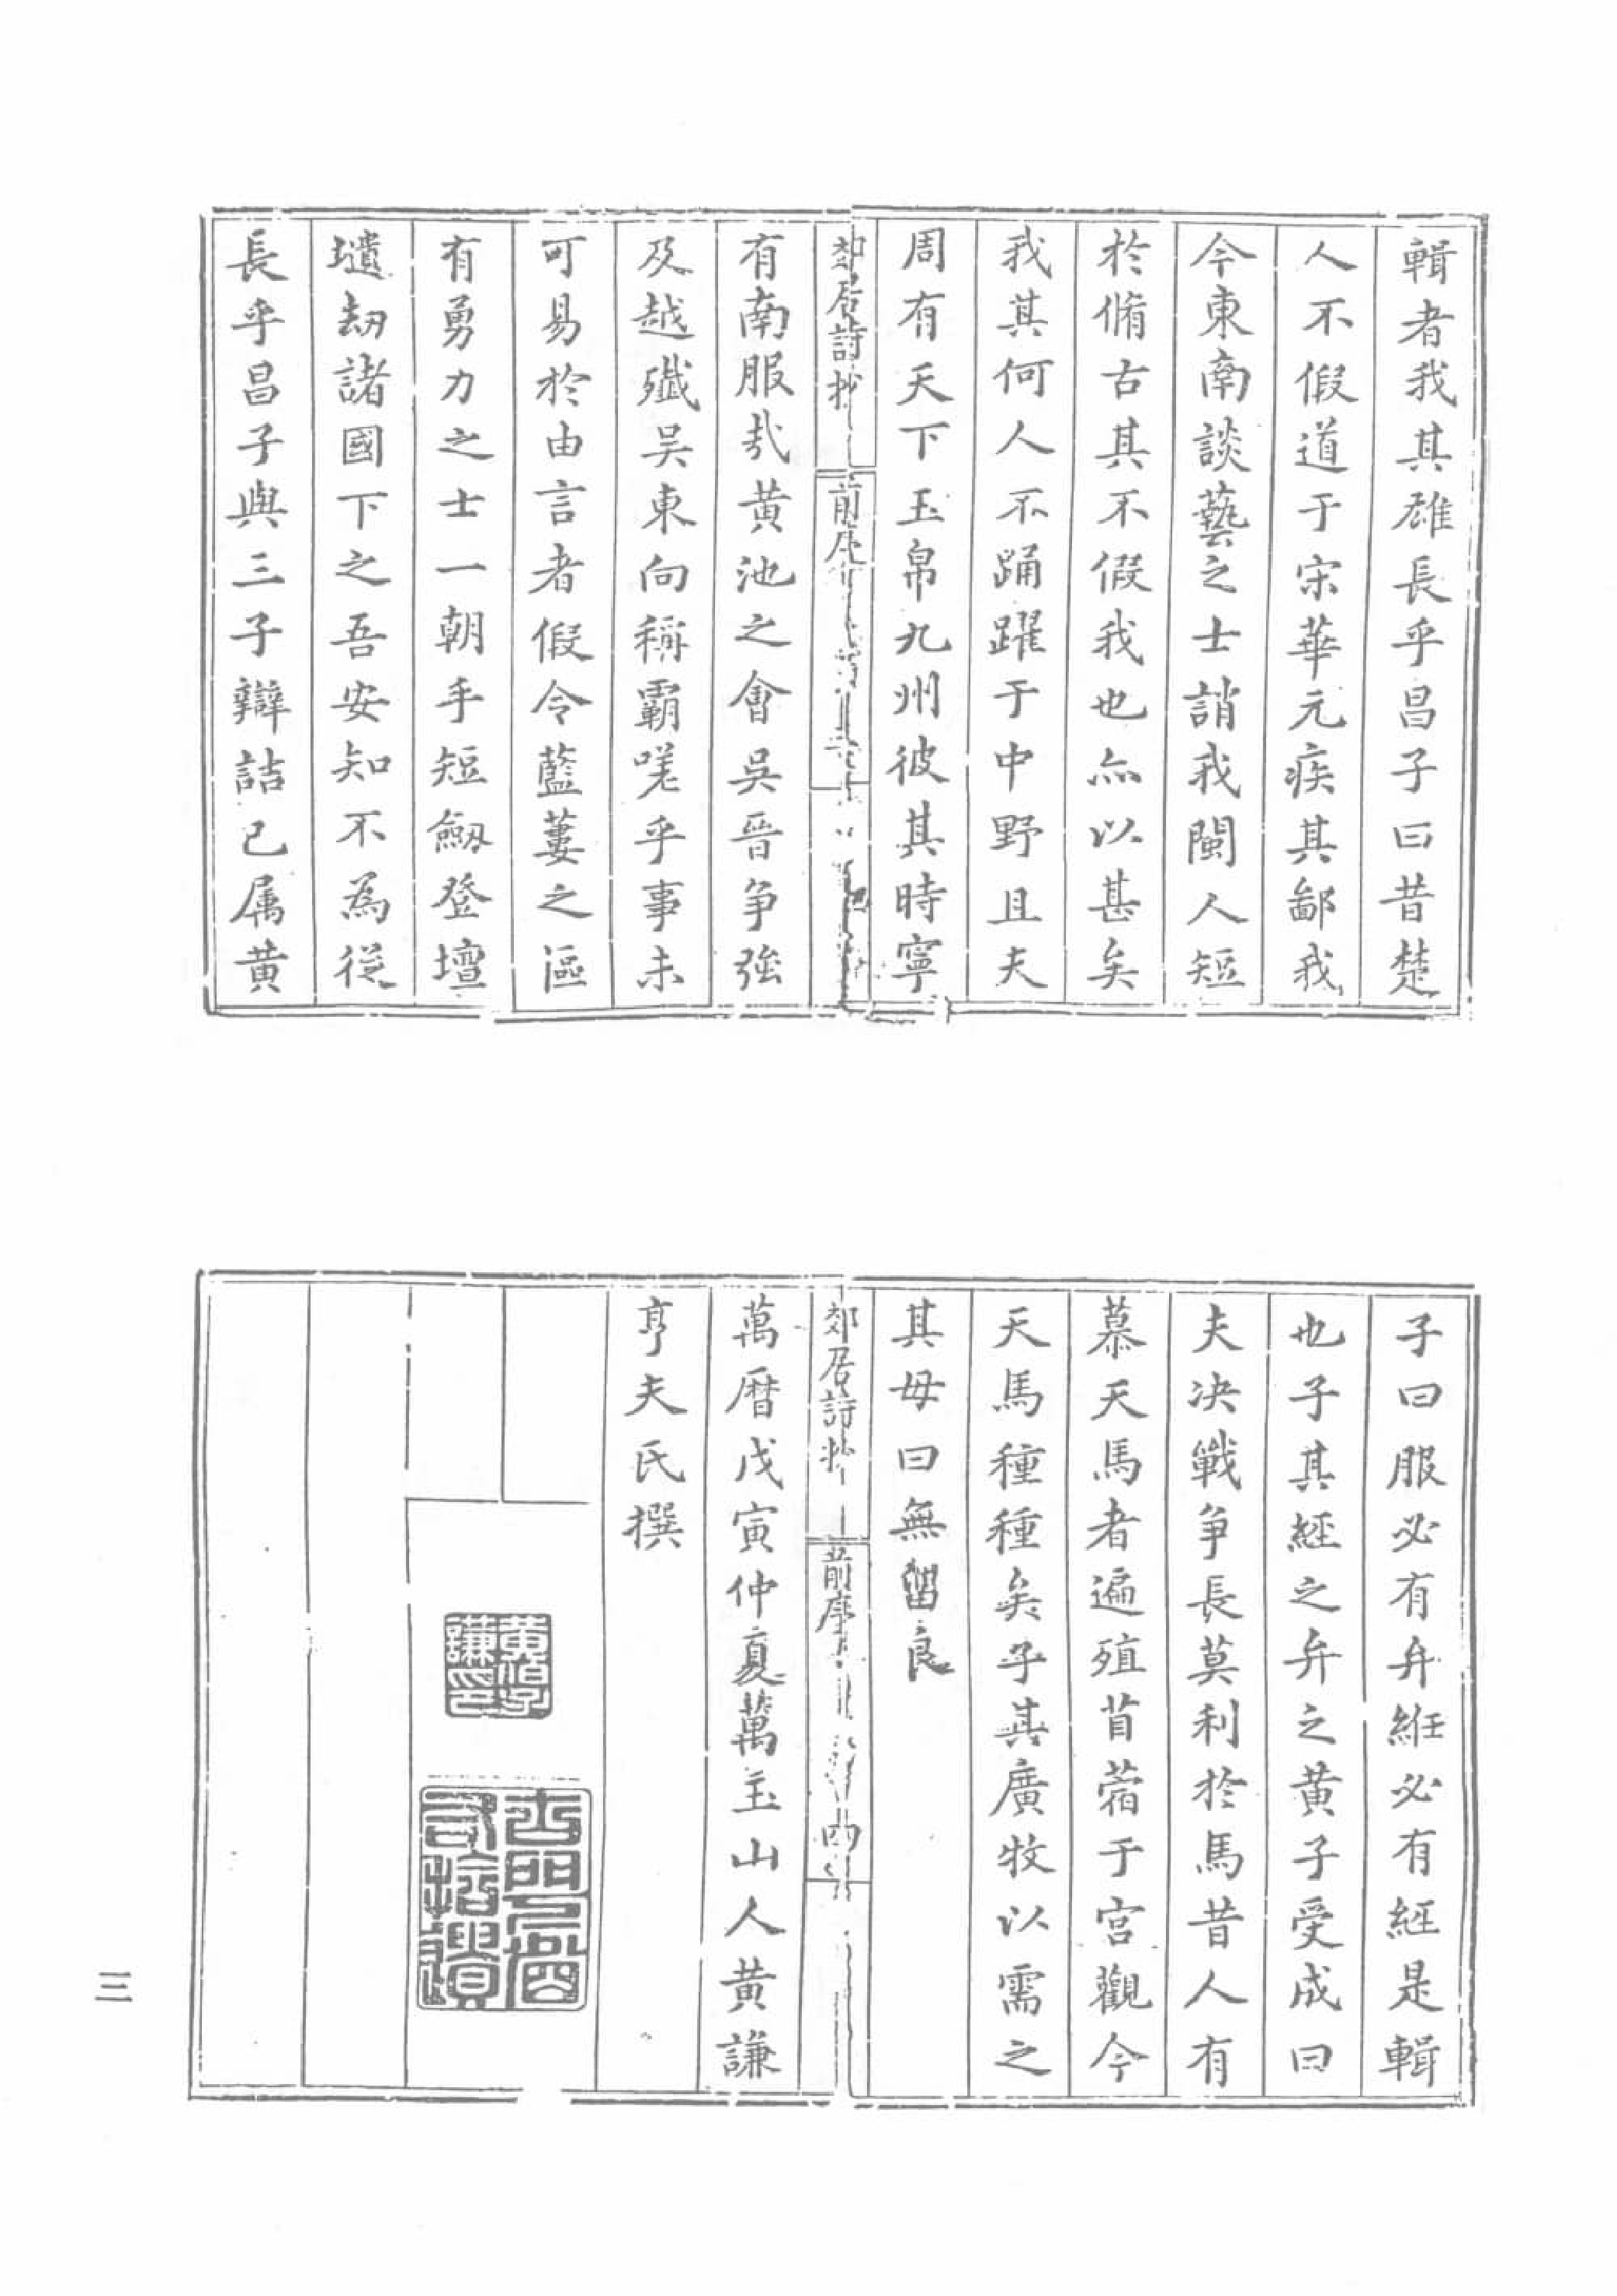 輯者我其雄長乎昌子曰昔楚
人不假道于宋華元疾其鄙我
今東南談藝之士誚我閩人短
於脩古其不假我也亦以甚矣
我其何人不踊躍于中野且夫
周有天下玉帛九州彼其時寧
郊居詩抄
前序
有南服哉黄池之會吳晉争強
及越殱吴東向稱霸嗟乎事未
可易於由言者假令藍蔞之區
有勇力之士一朝手短劔登壇
壝劫諸國下之吾安知不為從
長乎昌子與三子辯詰已属黄
子曰服必有弁紝必有經是輯
也子其經之弁之黄子受成曰
夫决戰争長莫利於馬昔人有
慕天馬者遍殖苜蓿于宫觀今
天馬種種矣子其廣牧以需之
其毋曰無留良
郊居詩抄
前序
四
萬曆戊寅仲夏萬玉山人黄謙
亨夫氏撰
三